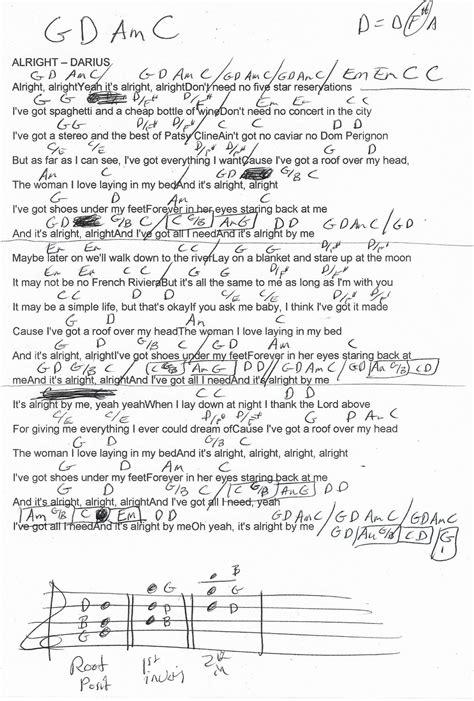 G D Am C
D = D F# A
ALRIGHT – DARIUS
G D Am C / G D Am C / G D Am C / G D Am C / Em Em C C
Alright, alrightYeah it's alright, alrightDon't need no five star reservations
G G D/F# D/F# Em Em C C
I've got spaghetti and a cheap bottle of wineDon't need no concert in the city
G G D/F# D/F# Em Em C C
I've got a stereo and the best of Patsy ClineAin't got no caviar no Dom Perignon
C/E C/E D/F# D/F# G D Am C
But as far as I can see, I've got everything I wantCause I've got a roof over my head,
G D G/B C
The woman I love laying in my bedAnd it's alright, alright
G D Am C
I've got shoes under my feetForever in her eyes staring back at me
G D G/B C / C G/B Am G D D / G D Am C / G D
And it's alright, alrightAnd I've got all I needAnd it's alright by me
Em Em C C G G D/F# D/F#
Maybe later on we'll walk down to the riverLay on a blanket and stare up at the moon
Em Em C C G G D/F# D/F#
It may not be no French RivieraBut it's all the same to me as long as I'm with you
C C D D C/E C/E D/F# D/F#
It may be a simple life, but that's okayIf you ask me baby, I think I've got it made
G D Am C
Cause I've got a roof over my headThe woman I love laying in my bed
G D G/B C G D Am C
And it's alright, alrightI've got shoes under my feetForever in her eyes staring back at
G D G/B C / C G/B Am G D D // G D Am C / G D Am G/B C D
meAnd it's alright, alrightAnd I've got all I needAnd it's alright by me
C C D D
It's alright by me, yeah yeahWhen I lay down at night I thank the Lord above
C/E C/E D/F# D/F# G D Am C
For giving me everything I ever could dream ofCause I've got a roof over my head
G D G/B C
The woman I love laying in my bedAnd it's alright, alright, alright, alright
G D Am C
I've got shoes under my feetForever in her eyes staring back at me
G D G/B C / C G/B Am G D D
And it's alright, alright, alrightAnd I've got all I need, yeah
Am G/B C Em D D G D Am C / G D Am C / G D Am C
I've got all I needAnd it's alright by meOh yeah, it's alright by me
G D Am G/B C D G
B
G G
D D D
B B
G
Root Posit
1st